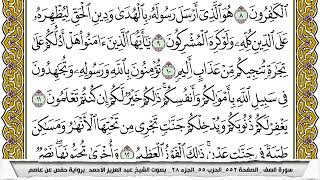 الْكَٰفِرُونَ ٨ هُوَ الَّذِي أَرْسَلَ رَسُولَهُ بِالْهُدَىٰ وَدِينِ الْحَقِّ لِيُظْهِرَهُ
عَلَى الدِّينِ كُلِّهِ وَلَوْ كَرِهَ الْمُشْرِكُونَ ٩ يَٰأَيُّهَا الَّذِينَ ءَامَنُوا هَلْ أَدُلُّكُمْ عَلَىٰ
تِجَٰرَةٍ تُنجِيكُم مِّنْ عَذَابٍ أَلِيمٍ ١٠ تُؤْمِنُونَ بِاللَّهِ وَرَسُولِهِ وَتُجَٰهِدُونَ
فِي سَبِيلِ اللَّهِ بِأَمْوَٰلِكُمْ وَأَنفُسِكُمْ ذَٰلِكُمْ خَيْرٌ لَّكُمْ إِن كُنتُمْ تَعْلَمُونَ ١١
يَغْفِرْ لَكُمْ ذُنُوبَكُمْ وَيُدْخِلْكُمْ جَنَّٰتٍ تَجْرِي مِن تَحْتِهَا الْأَنْهَٰرُ وَمَسَٰكِنَ
طَيِّبَةً فِي جَنَّٰتِ عَدْنٍ ذَٰلِكَ الْفَوْزُ الْعَظِيمُ ١٢ وَأُخْرَىٰ تُحِبُّونَهَا نَصْرٌ
سورة الصف ـ الصفحة ٥٥٢ ـ الحزب ٥٥ ـ الجزء ٢٨ ـ بصوت الشيخ عبد العزيز الأحمد ـ برواية حفص عن عاصم